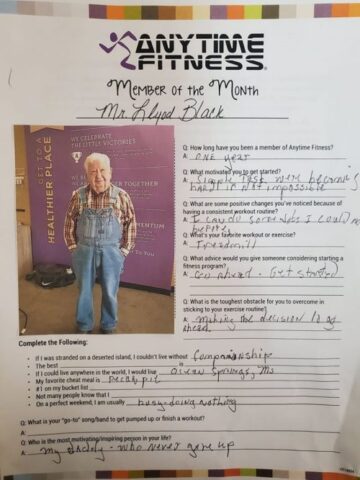 ANYTIME
FITNESS®
MEMBER OF THE MONTH
Mr. Llyod Black
GET TO A
HEALTHIER PLACE
WE CELEBRATE
THE LITTLE VICTORIES
TOGETHER
MOMENTUM
Q: How long have you been a member of Anytime Fitness?
A: one year
Q: What motivated you to get started?
A: Simple task were becoming
hard if not impossible
Q: What are some positive changes you've noticed because of
having a consistent workout routine?
A: I can do some jobs I could not
before
Q: What's your favorite workout or exercise?
A: Treadmill
Q: What advice would you give someone considering starting a
fitness program?
A: Go ahead - Get started
Q: What is the toughest obstacle for you to overcome in
sticking to your exercise routine?
A: making the decision to go
ahead
Complete the Following:
• If I was stranded on a deserted island, I couldn't live without companionship
• The best
• If I could live anywhere in the world, I would live Ocean Springs, Ms
• My favorite cheat meal is pecan pie
• #1 on my bucket list
• Not many people know that I
• On a perfect weekend, I am usually busy doing nothing
Q: What is your "go-to" song/band to get pumped up or finish a workout?
A:
Q: Who is the most motivating/inspiring person in your life?
A: my daddy - who never gave up